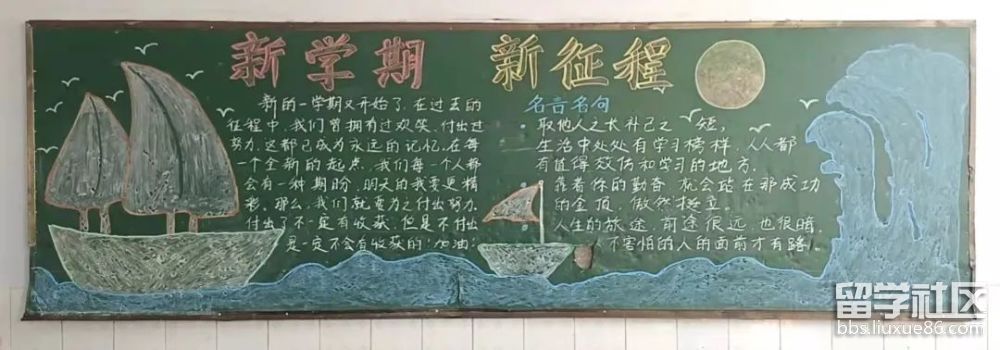 新学期 新征程
新的一学期又开始了，在过去的
征程中，我们曾拥有过欢笑，付出过
努力，这都已成为永远的记忆。在每
一个全新的起点，我们每一个人都
会有一种期盼，明天的我要更精
彩。那么，我们就要为之付出努力，
付出了不一定有收获，但是不付出
是一定不会有收获的！加油！
名言名句
取他人之长补己之短，
生活中处处有学习榜样，人人都
有值得效仿和学习的地方。
靠着你的勤奋 就会站在那成功
的金顶，傲然挺立。
人生的旅途，前途很远，也很暗，
不害怕的人的面前才有路。
留学社区
bbs.liuxue86.com